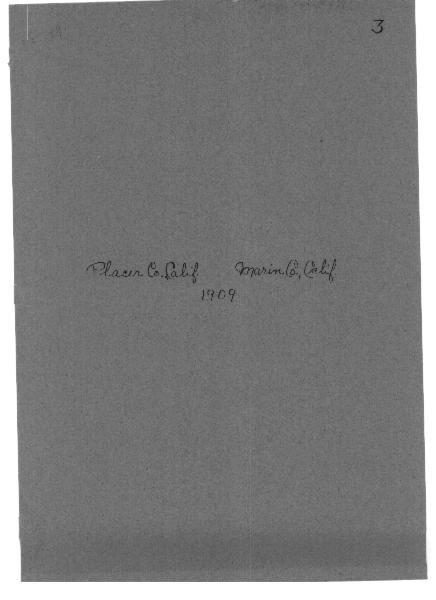 3
Placer Co. Calif. Marin Co., Calif.
1909